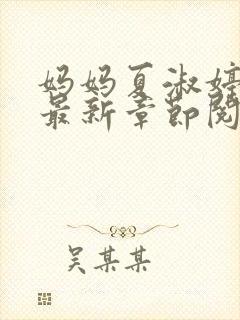 妈妈夏淑婷
最新章节阅
吴某某